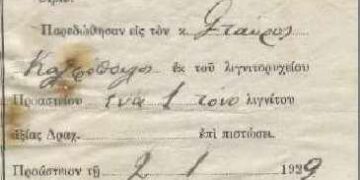 Παρεδώθησαν εἰς τὸν κ. Σταῦρος
ἐκ τοῦ λιγνιτορυχείου
Προαστείου ἕνα 1 τόνο λιγνίτου
ἀξίας Δραχ. ἐπὶ πιστώσει.
Προάστειον τῇ 2 1 1929